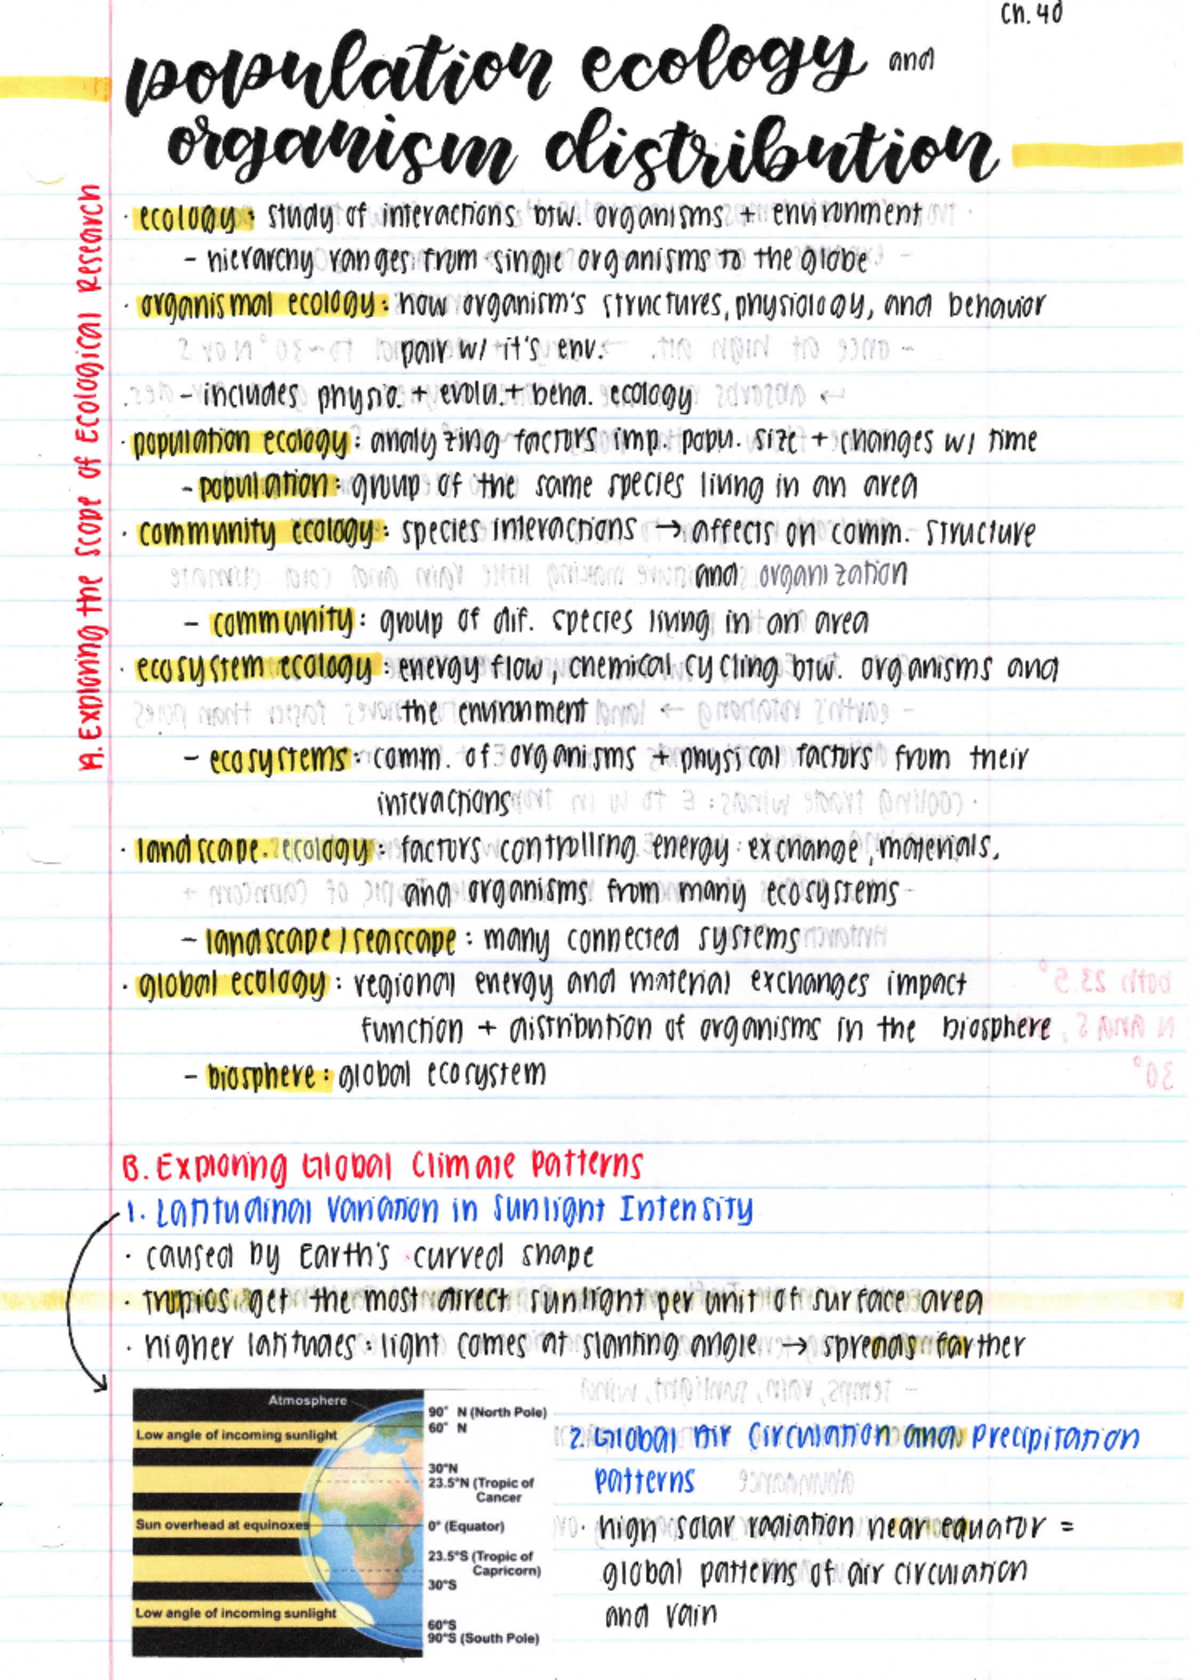 Ch. 40
population ecology and
organism distribution
A. Exploring the Scope of Ecological Research
· ecology: study of interactions btw. organisms + environment
- hierarchy ranges from single organisms to the globe
· organismal ecology: how organism's structures, physiology, and behavior
pair w/ it's env.
- includes physio. + evolu. + beha. ecology
· population ecology: analyzing factors imp. popu. size + changes w/ time
- population: group of the same species living in an area
· community ecology: species interactions → affects on comm. structure
and organization
- community: group of dif. species living in an area
· ecosystem ecology: energy flow, chemical cycling btw. organisms and
the environment
- ecosystems: comm. of organisms + physical factors from their
interactions
· landscape ecology: factors controlling energy exchange, materials,
and organisms from many ecosystems
- landscape/seascape: many connected systems
· global ecology: regional energy and material exchanges impact
function + distribution of organisms in the biosphere
- biosphere: global ecosystem
B. Exploring Global Climate Patterns
1. Latitudinal Variation in Sunlight Intensity
· caused by Earth's curved shape
· tropics get the most direct sunlight per unit of surface area
· higher latitudes: light comes at slanting angle → spreads farther
Atmosphere
Low angle of incoming sunlight
Sun overhead at equinoxes
Low angle of incoming sunlight
90° N (North Pole)
60° N
30°N
23.5°N (Tropic of
Cancer
0° (Equator)
23.5°S (Tropic of
Capricorn)
30°S
60°S
90°S (South Pole)
2. Global Air Circulation and Precipitation
Patterns
· high solar radiation near equator =
global patterns of air circulation
and rain